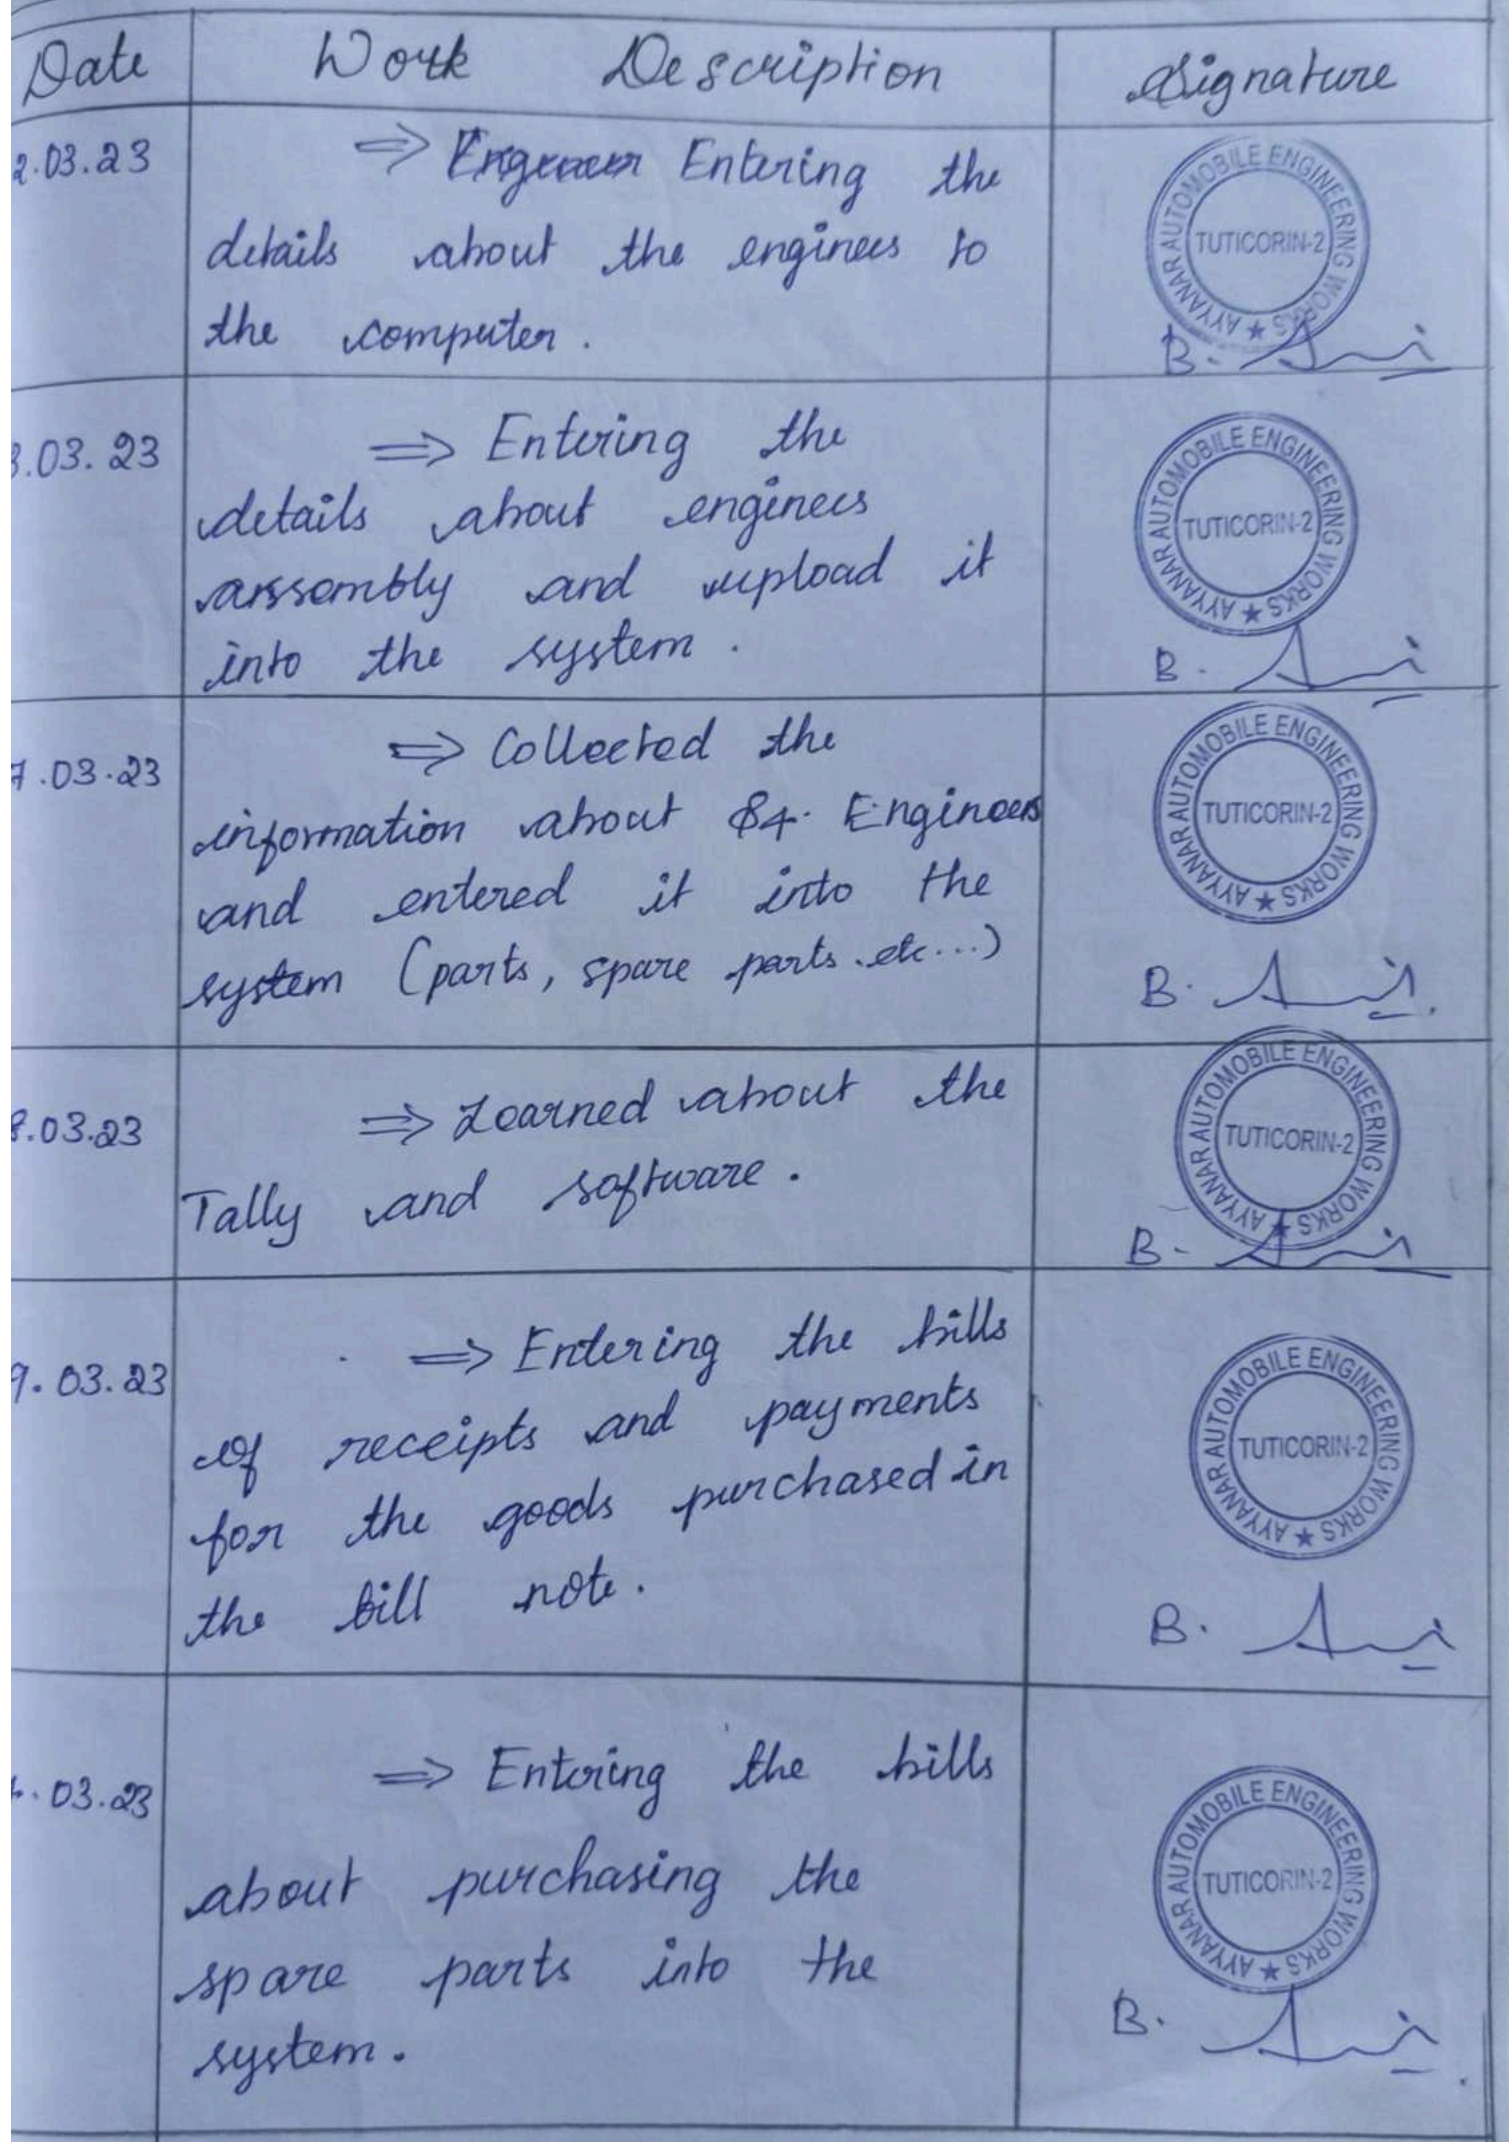 Date Work Description Signature
2.03.23 ⇒ Entering the
details about the enginees to
the computer.
AYYANAR AUTOMOBILE ENGINEERING WORKS ★
TUTICORIN-2
B.
3.03.23 ⇒ Entering the
details about enginees
assembly and upload it
into the system.
AYYANAR AUTOMOBILE ENGINEERING WORKS ★
TUTICORIN-2
B.
7.03.23 ⇒ Collected the
information about Enginees
and entered it into the
system (parts, spare parts etc...)
AYYANAR AUTOMOBILE ENGINEERING WORKS ★
TUTICORIN-2
B.
8.03.23 ⇒ Learned about the
Tally and software.
AYYANAR AUTOMOBILE ENGINEERING WORKS ★
TUTICORIN-2
B-
9.03.23 ⇒ Entering the bills
of receipts and payments
for the goods purchased in
the bill note.
AYYANAR AUTOMOBILE ENGINEERING WORKS ★
TUTICORIN-2
B.
.03.23 ⇒ Entering the bills
about purchasing the
spare parts into the
system.
AYYANAR AUTOMOBILE ENGINEERING WORKS ★
TUTICORIN-2
B.